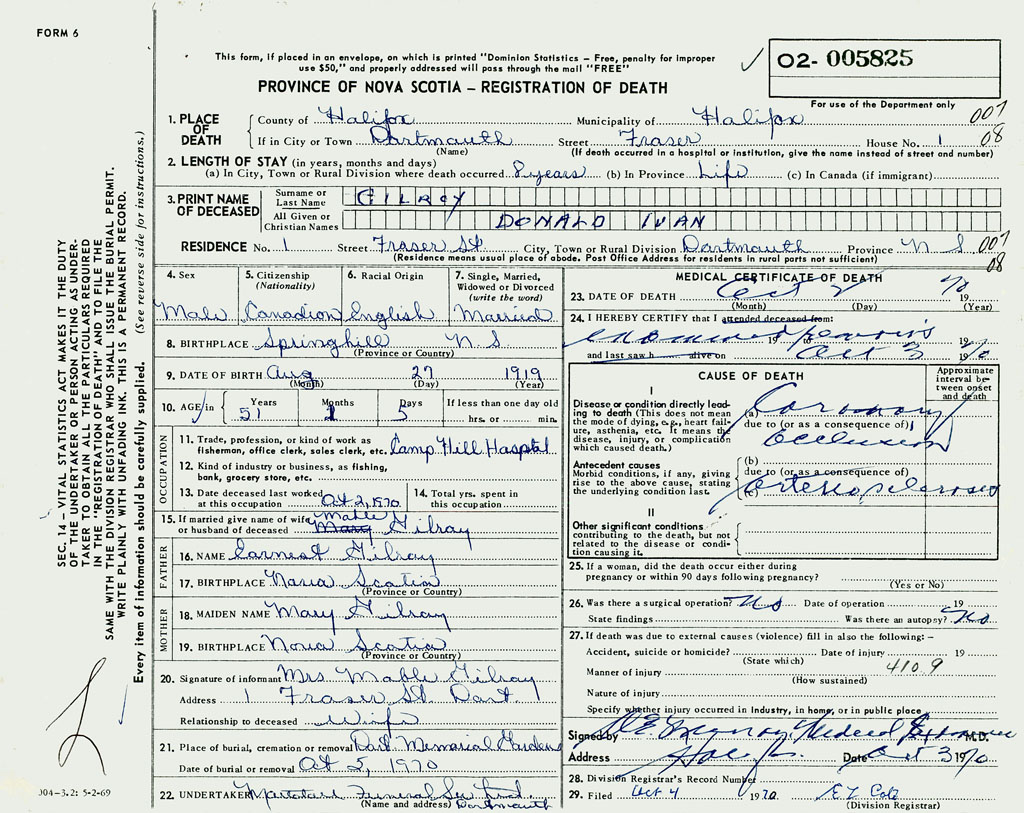 FORM 6
This form, if placed in an envelope, on which is printed "Dominion Statistics – Free, penalty for improper
use $50," and properly addressed will pass through the mail "FREE"
02- 005825
PROVINCE OF NOVA SCOTIA – REGISTRATION OF DEATH
For use of the Department only
1. PLACE OF DEATH County of Halifax Municipality of Halifax 007
If in City or Town Dartmouth Street Fraser House No. 1 08
(Name) (If death occurred in a hospital or institution, give the name instead of street and number)
2. LENGTH OF STAY (in years, months and days)
(a) In City, Town or Rural Division where death occurred 8 years (b) In Province Life (c) In Canada (if immigrant)
3. PRINT NAME OF DECEASED Surname or Last Name GILROY
All Given or Christian Names DONALD IVAN
RESIDENCE No. 1 Street Fraser St City, Town or Rural Division Dartmouth Province N S 007
(Residence means usual place of abode. Post Office Address for residents in rural parts not sufficient) 08
4. Sex 5. Citizenship (Nationality) 6. Racial Origin 7. Single, Married, Widowed or Divorced (write the word)
Male Canadian English Married
8. BIRTHPLACE Springhill N. S
(Province or Country)
9. DATE OF BIRTH Aug 27 1919
(Month) (Day) (Year)
10. AGE in Years Months Days If less than one day old
51 5 hrs. or min.
OCCUPATION
11. Trade, profession, or kind of work as
fisherman, office clerk, sales clerk, etc. Camp Hill Hospital
12. Kind of industry or business, as fishing,
bank, grocery store, etc.
13. Date deceased last worked at this occupation Oct 2, 1970 14. Total yrs. spent in this occupation
15. If married give name of wife or husband of deceased Mable Mary Gilray
FATHER
16. NAME Earnest Gilray
17. BIRTHPLACE Nova Scotia
(Province or Country)
MOTHER
18. MAIDEN NAME Mary Gilray
19. BIRTHPLACE Nova Scotia
(Province or Country)
20. Signature of informant Mrs Mable Gilray
Address 1 Fraser St. Dart
Relationship to deceased Wife
21. Place of burial, cremation or removal Dart Memorial Gardens
Date of burial or removal Oct 5, 1970
22. UNDERTAKER Funeral Ser Ltd.
(Name and address) Dartmouth
MEDICAL CERTIFICATE OF DEATH
23. DATE OF DEATH Oct 2 1970
(Month) (Day) (Year)
24. I HEREBY CERTIFY that I attended deceased from:
examined 19 to 19
and last saw h alive on Oct 3 1970
CAUSE OF DEATH
Approximate interval between onset and death
I
Disease or condition directly leading to death (This does not mean
the mode of dying, e.g., heart failure, asthenia, etc. It means the
disease, injury, or complication which caused death.)
(a) Coronary
due to (or as a consequence of)
Occlusion
Antecedent causes
Morbid conditions, if any, giving
rise to the above cause, stating
the underlying condition last.
(b)
due to (or as a consequence of)
(c) Arteriosclerosis
II
Other significant conditions
contributing to the death, but not
related to the disease or condition causing it.
25. If a woman, did the death occur either during
pregnancy or within 90 days following pregnancy?
(Yes or No)
26. Was there a surgical operation? No Date of operation 19
State findings Was there an autopsy? No
27. If death was due to external causes (violence) fill in also the following: –
Accident, suicide or homicide? Date of injury 19
(State which)
Manner of injury 410.9
(How sustained)
Nature of injury
Specify whether injury occurred in industry, in home, or in public place
Signed by Medical Examiner M.D.
Address Date Oct 3 1970
28. Division Registrar's Record Number
29. Filed Oct 4 1970 E L Cole
(Division Registrar)
SEC. 14 – VITAL STATISTICS ACT MAKES IT THE DUTY
OF THE UNDERTAKER OR PERSON ACTING AS UNDERTAKER TO OBTAIN ALL THE PARTICULARS REQUIRED
IN THE "REGISTRATION OF DEATH" AND TO FILE THE
SAME WITH THE DIVISION REGISTRAR WHO SHALL ISSUE THE BURIAL PERMIT.
WRITE PLAINLY WITH UNFADING INK. THIS IS A PERMANENT RECORD.
Every item of information should be carefully supplied. (See reverse side for instructions.)
004-3.2: 5-2-69